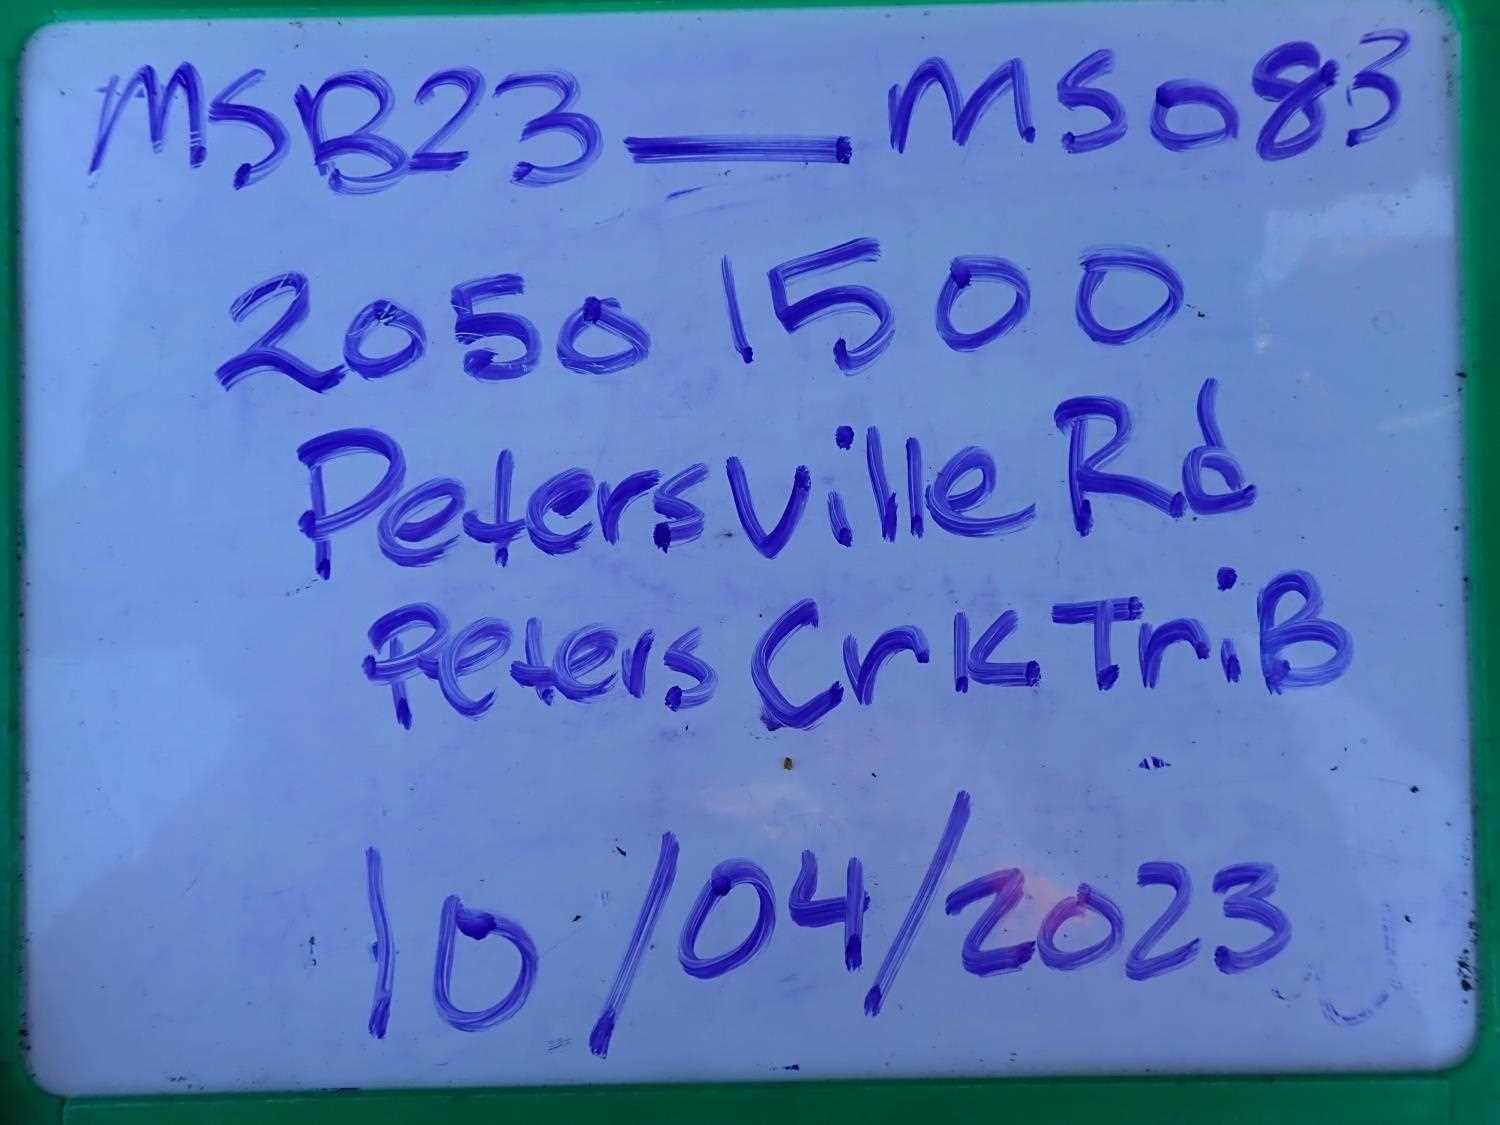 MSB23 — MS083
20501500
Petersville Rd
Peters Crk TriB
10/04/2023